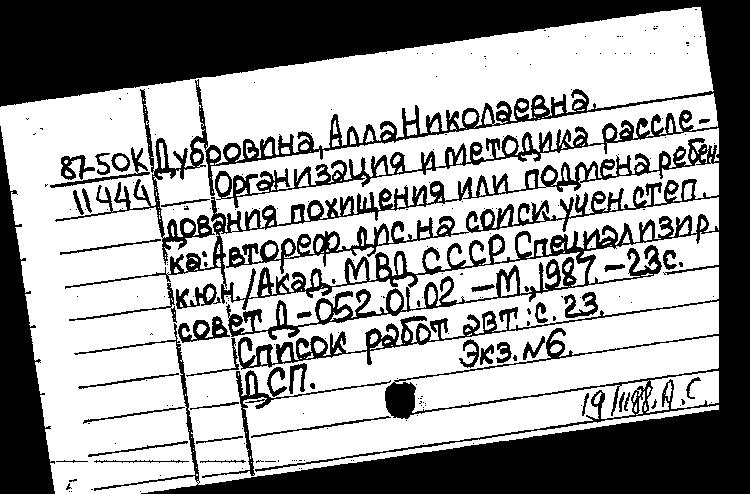 87-50К Дубровина, Алла Николаевна.
11444 Организация и методика рассле-
дования похищения или подмена ребен-
ка: Автореф. дис. на соиск. учен. степ.
к.ю.н. /Акад. МВД СССР. Специализир.
совет Д-052.01.02. – М., 1987. – 23с.
Список работ авт.: с. 23.
ДСП. Экз. N6.
19/1188. А.С.